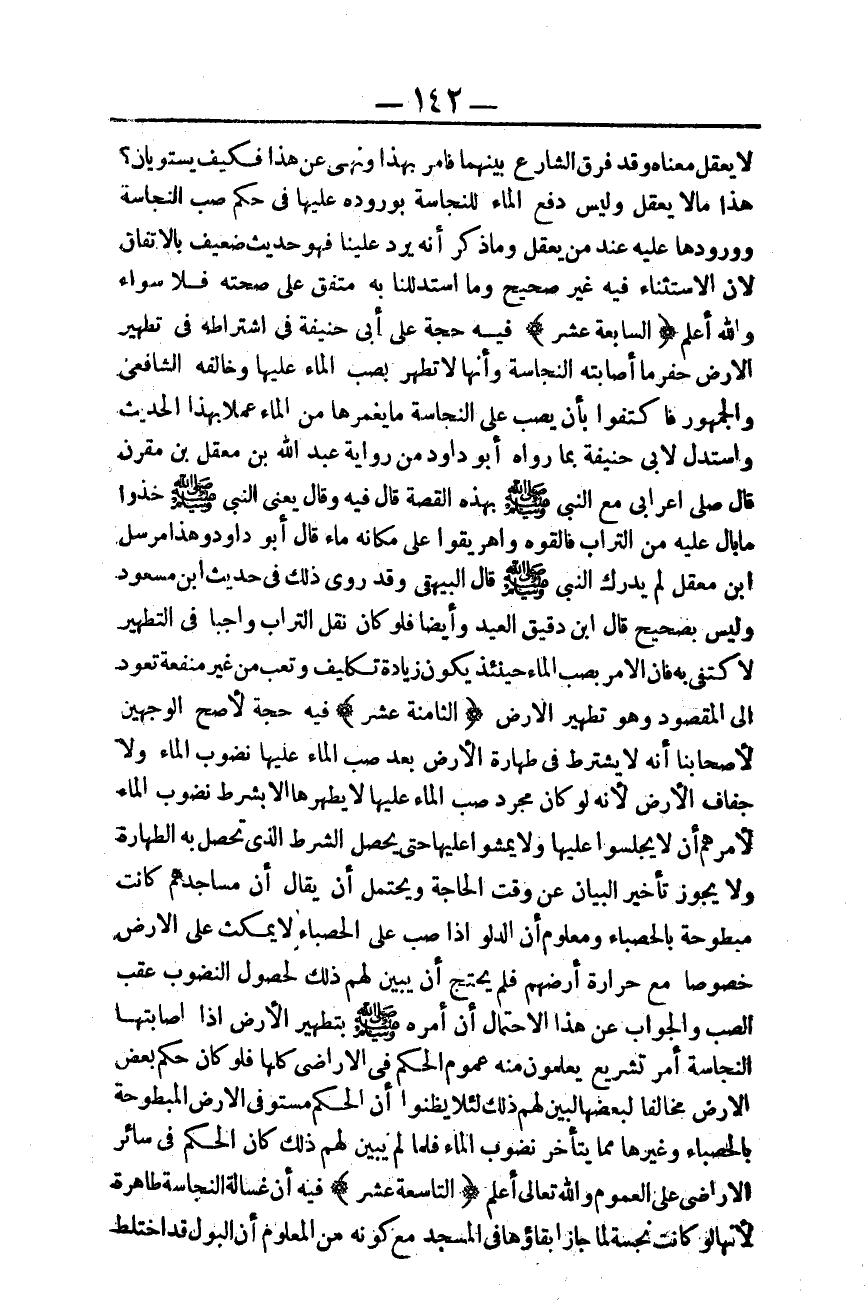 — ١٤٢ —
لا يعقل معناه وقد فرق الشارع بينهما فامر بهذا ونهى عن هذا فكيف يستويان؟
هذا مالا يعقل وليس دفع الماء للنجاسة بوروده عليها فى حكم صب النجاسة
وورودها عليه عند من يعقل وماذكر أنه يرد علينا فهو حديث ضعيف بالاتفاق
لان الاستثناء فيه غير صحيح وما استدللنا به متفق على صحته فلا سواء
والله أعلم ﴿ السابعة عشر ﴾ فيه حجة على أبى حنيفة فى اشتراطه فى تطهير
الارض حفر ما أصابته النجاسة وأنها لا تطهر بصب الماء عليها وخالفه الشافعى
والجمهور فاكتفوا بأن يصب على النجاسة مايغمرها من الماء عملا بهذا الحديث
واستدل لابى حنيفة بما رواه أبو داود من رواية عبد الله بن معقل بن مقرن
قال صلى اعرابى مع النبى ﷺ بهذه القصة قال فيه وقال يعنى النبى ﷺ خذوا
مابال عليه من التراب فالقوه واهريقوا على مكانه ماء قال أبو داود وهذا مرسل
ابن معقل لم يدرك النبى ﷺ قال البيهقى وقد روى ذلك فى حديث ابن مسعود
وليس بصحيح قال ابن دقيق العيد وأيضا فلو كان نقل التراب واجبا فى التطهير
لاكتفى به فان الامر بصب الماء حينئذ يكون زيادة تكليف وتعب من غير منفعة تعود
الى المقصود وهو تطهير الارض ﴿ الثامنة عشر ﴾ فيه حجة لأصح الوجهين
لأصحابنا أنه لا يشترط فى طهارة الأرض بعد صب الماء عليها نضوب الماء ولا
جفاف الأرض لأنه لو كان مجرد صب الماء عليها لا يطهرها الا بشرط نضوب الماء
لأمرهم أن لا يجلسوا عليها ولا يمشوا عليها حتى يحصل الشرط الذى تحصل به الطهارة
ولا يجوز تأخير البيان عن وقت الحاجة ويحتمل أن يقال أن مساجدهم كانت
مبطوحة بالحصباء ومعلوم أن الدلو اذا صب على الحصباء لا يمكث على الارض
خصوصا مع حرارة أرضهم فلم يحتج أن يبين لهم ذلك لحصول النضوب عقب
الصب والجواب عن هذا الاحتمال أن أمره ﷺ بتطهير الأرض اذا اصابتها
النجاسة أمر تشريع يعلمون منه عموم الحكم فى الاراضى كلها فلو كان حكم بعض
الارض مخالفا لبعضها لبين لهم ذلك لئلا يظنوا أن الحكم مستو فى الارض المبطوحة
بالحصباء وغيرها مما يتأخر نضوب الماء فلما لم يبين لهم ذلك كان الحكم فى سائر
الاراضى على العموم والله تعالى أعلم ﴿ التاسعة عشر ﴾ فيه أن غسالة النجاسة طاهرة
لأنها لو كانت نجسة لما جاز ابقاؤها فى المسجد مع كونه من المعلوم أن البول قد اختلط